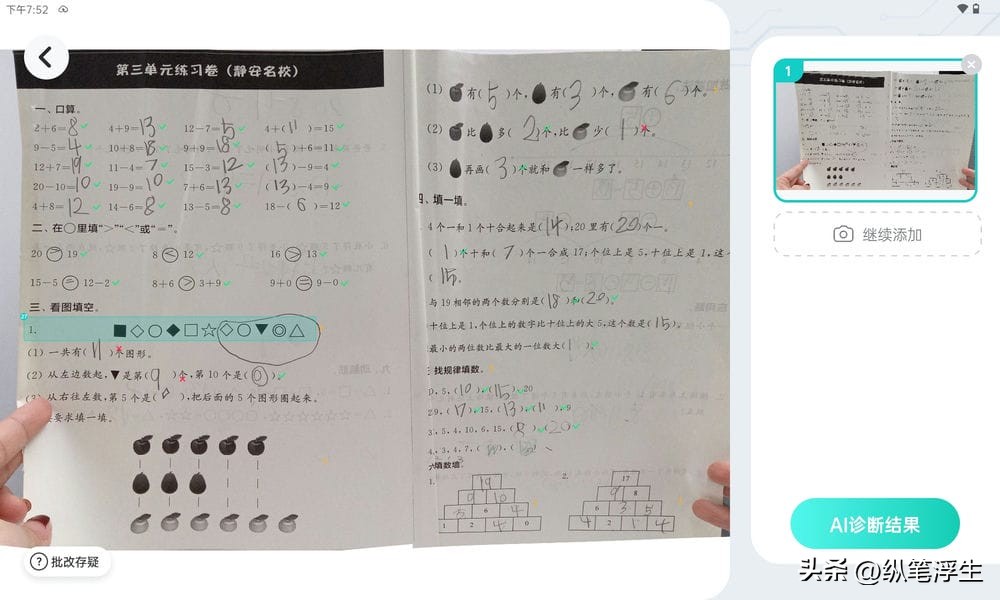 下午7:52
第三单元练习卷(静安名校)
一、口算。
2+6=8 4+9=13 12-7=5 4+(11)=15
9-5=4 10+8=18 9+9=18 (5)+6=11
12+7=19 11-4=7 15-3=12 (13)-9=4
20-10=10 19-9=10 7+6=13 (13)-4=9
4+8=12 14-6=8 13-5=8 18-(6)=12
二、在○里填“>”“<”或“=”。
20 > 19 8 < 12 16 > 13
15-5 = 12-2 8+6 > 3+9 9+0 = 9-0
三、看图填空。
1.
(1) 一共有(11)个图形。
(2) 从左边数起,▼是第(9)个,第10个是(◎)。
(3) 从右往左数,第5个是(◇),把后面的5个图形圈起来。
要求填一填。
(1) 有(5)个,有(3)个,有(6)个。
(2) 比多(2)个,比少(1)个。
(3) 再画(3)个就和一样多了。
四、填一填。
4个一和1个十合起来是(14);20里有(20)个一。
(1)个十和(7)个一合成17;个位上是5,十位上是1,这
(15)
与19相邻的两个数分别是(18)和(20)。
十位上是1,个位上的数字比十位上的大5,这个数是(15)。
最小的两位数比最大的一位数大(1)。
找规律填数。
0,5,(10),(15),20
(17),15,(13),(11),9
3,5,4,10,6,15,(8),(20)
4,3,4,7,
六、填数墙。
1. 2.
19 17
9 10 9 8
5 6 4 6 3 5
1 2 4 0 4 2 1 4
批改存疑
1
继续添加
AI诊断结果
头条 @纵笔浮生